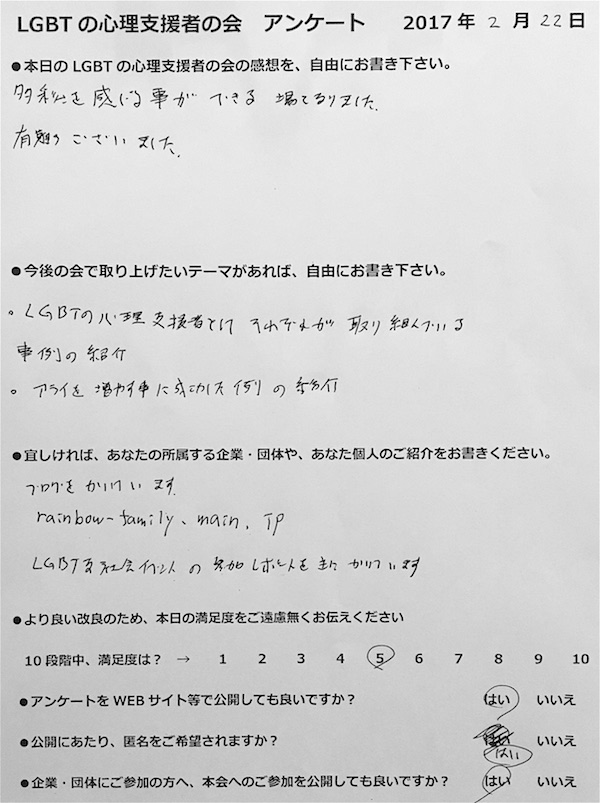 LGBT の心理支援者の会 アンケート 2017 年 2 月 22 日
●本日の LGBT の心理支援者の会の感想を、自由にお書き下さい。
多彩を感じる事ができる 場でありました。
有難うございました。
●今後の会で取り上げたいテーマがあれば、自由にお書き下さい。
。LGBTの心理支援者として それぞれが 取り組んでいる
事例の紹介
。アライを 増やす事に成功した例の紹介
●宜しければ、あなたの所属する企業・団体や、あなた個人のご紹介をお書きください。
ブログをかいています
rainbow-family、main.
LGBT 社会イベントの参加レポートを主に かいています
●より良い改良のため、本日の満足度をご遠慮無くお伝えください
10 段階中、満足度は？ → 1 2 3 4 5 6 7 8 9 10
●アンケートを WEB サイト等で公開しても良いですか？ はい いいえ
●公開にあたり、匿名をご希望されますか？ はい いいえ
はい
●企業・団体にご参加の方へ、本会へのご参加を公開しても良いですか？ はい いいえ